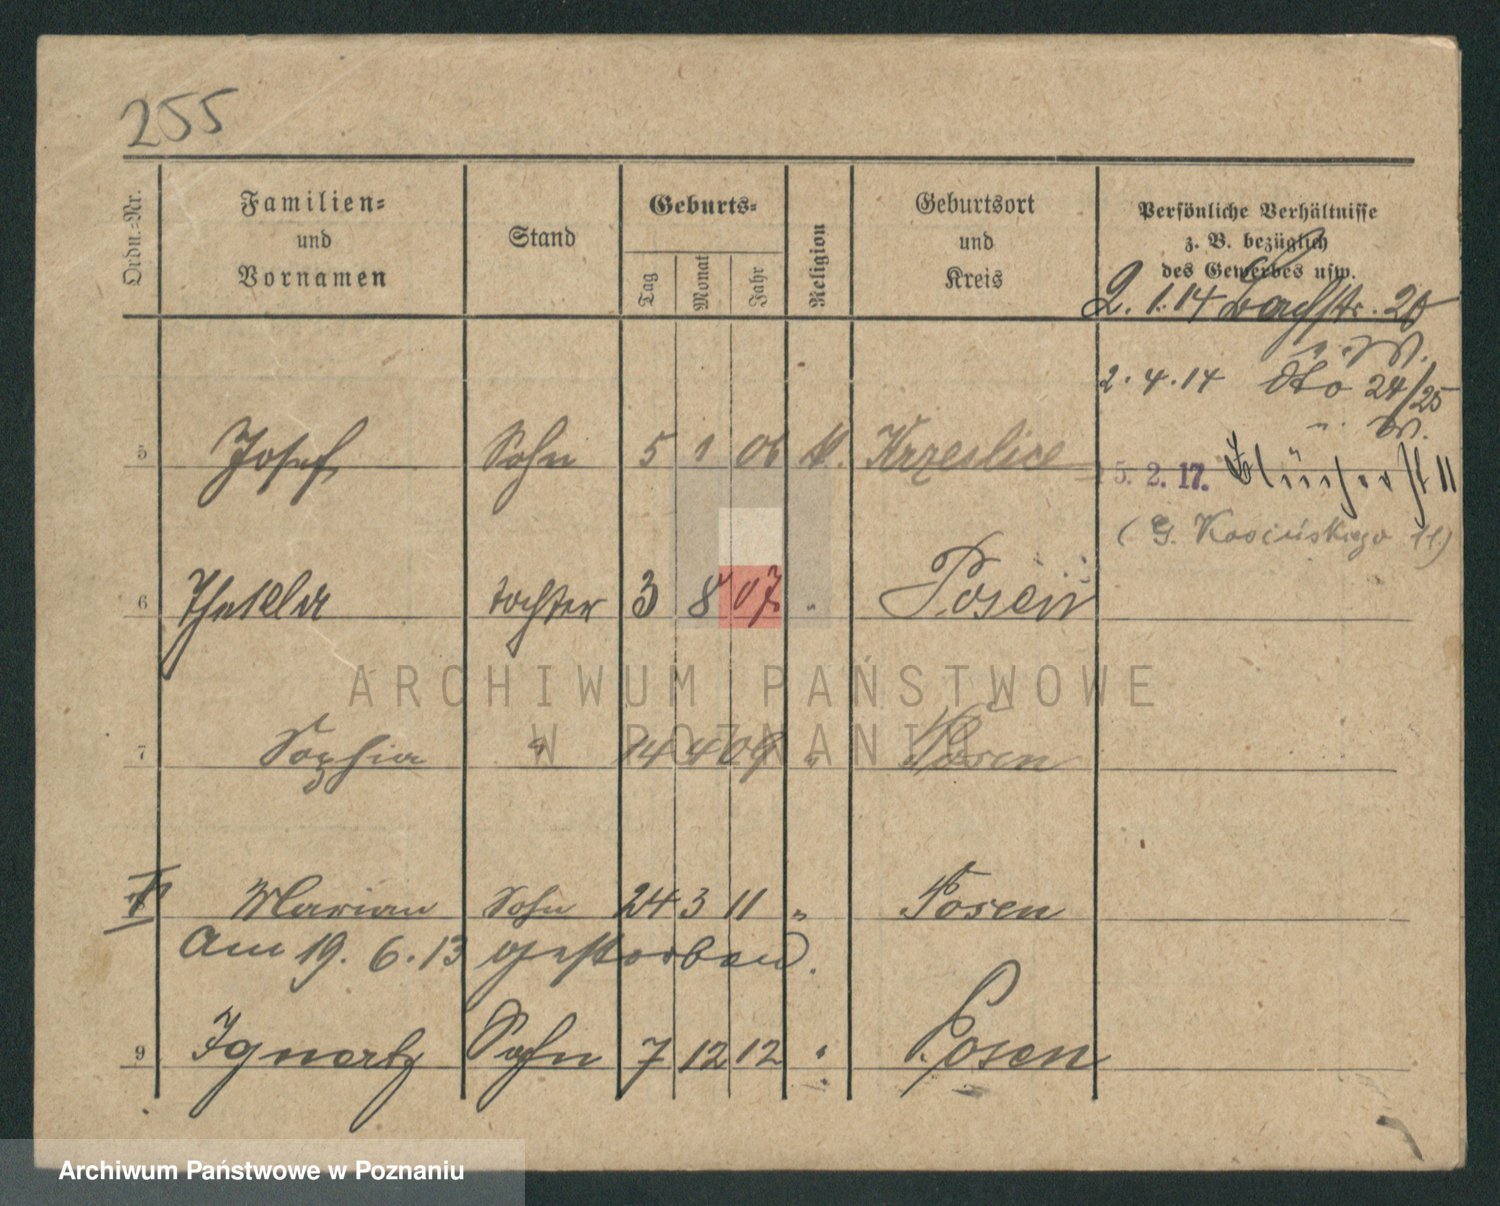 255
Ordn.=Nr.
Familien=
und
Vornamen
Stand
Geburts=
Tag
Monat
Jahr
Religion
Geburtsort
und
Kreis
Persönliche Verhältnisse
z. B. bezüglich
des Gewerbes usw.
2. 1. 14 Bachstr. 20
2. 4. 14 dto 24/25
5 Josef Sohn 5 1 06 k. Krzeslice
15. 2. 17. Blücherst 11
(G. Kosińskiego 11)
6 Thekla tochter 3 8 07 " Posen
ARCHIWUM PAŃSTWOWE
W POZNANIU
7 Sophia " 14 4 09 " Posen
Marian Sohn 24 3 11 " Posen
Am 19. 6. 13 gestorben.
9 Ignatz Sohn 7 12 12 " Posen
Archiwum Państwowe w Poznaniu